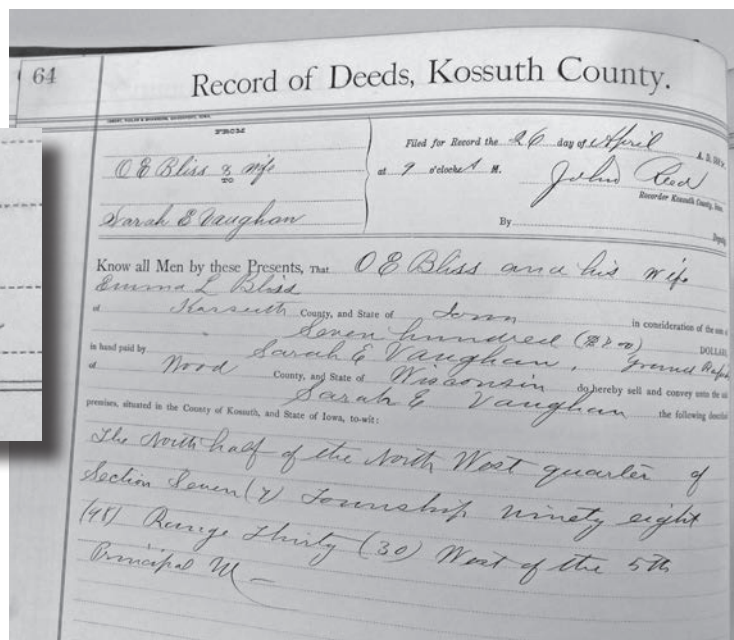 64
Record of Deeds, Kossuth County.
FROM
O E Bliss & wife
TO
Sarah E Vaughan
Filed for Record the 26 day of April A. D.
at 9 o'clock A M.
John Reed
Recorder Kossuth County, Iowa.
By Deputy
Know all Men by these Presents, THAT O E Bliss and his wife
Emma L Bliss
of Kossuth County, and State of Iowa in consideration of the sum of
Seven hundred DOLLARS
in hand paid by Sarah E Vaughan, Grand Rapids
of Wood County, and State of Wisconsin do hereby sell and convey unto the said
Sarah E Vaughan the following described
premises, situated in the County of Kossuth, and State of Iowa, to-wit:
The North half of the North West quarter of
Section Seven (7) Township ninety eight
(98) Range Thirty (30) West of the 5th
Principal M